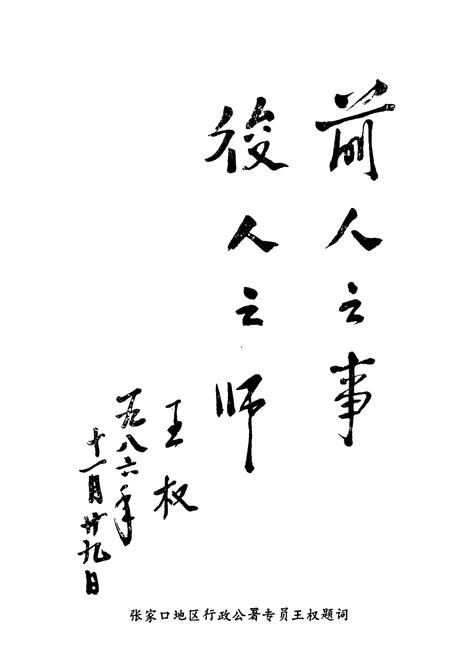 前人之事
後人之师
王权
一九八六年
十一月廿九日
张家口地区行政公署专员王权题词